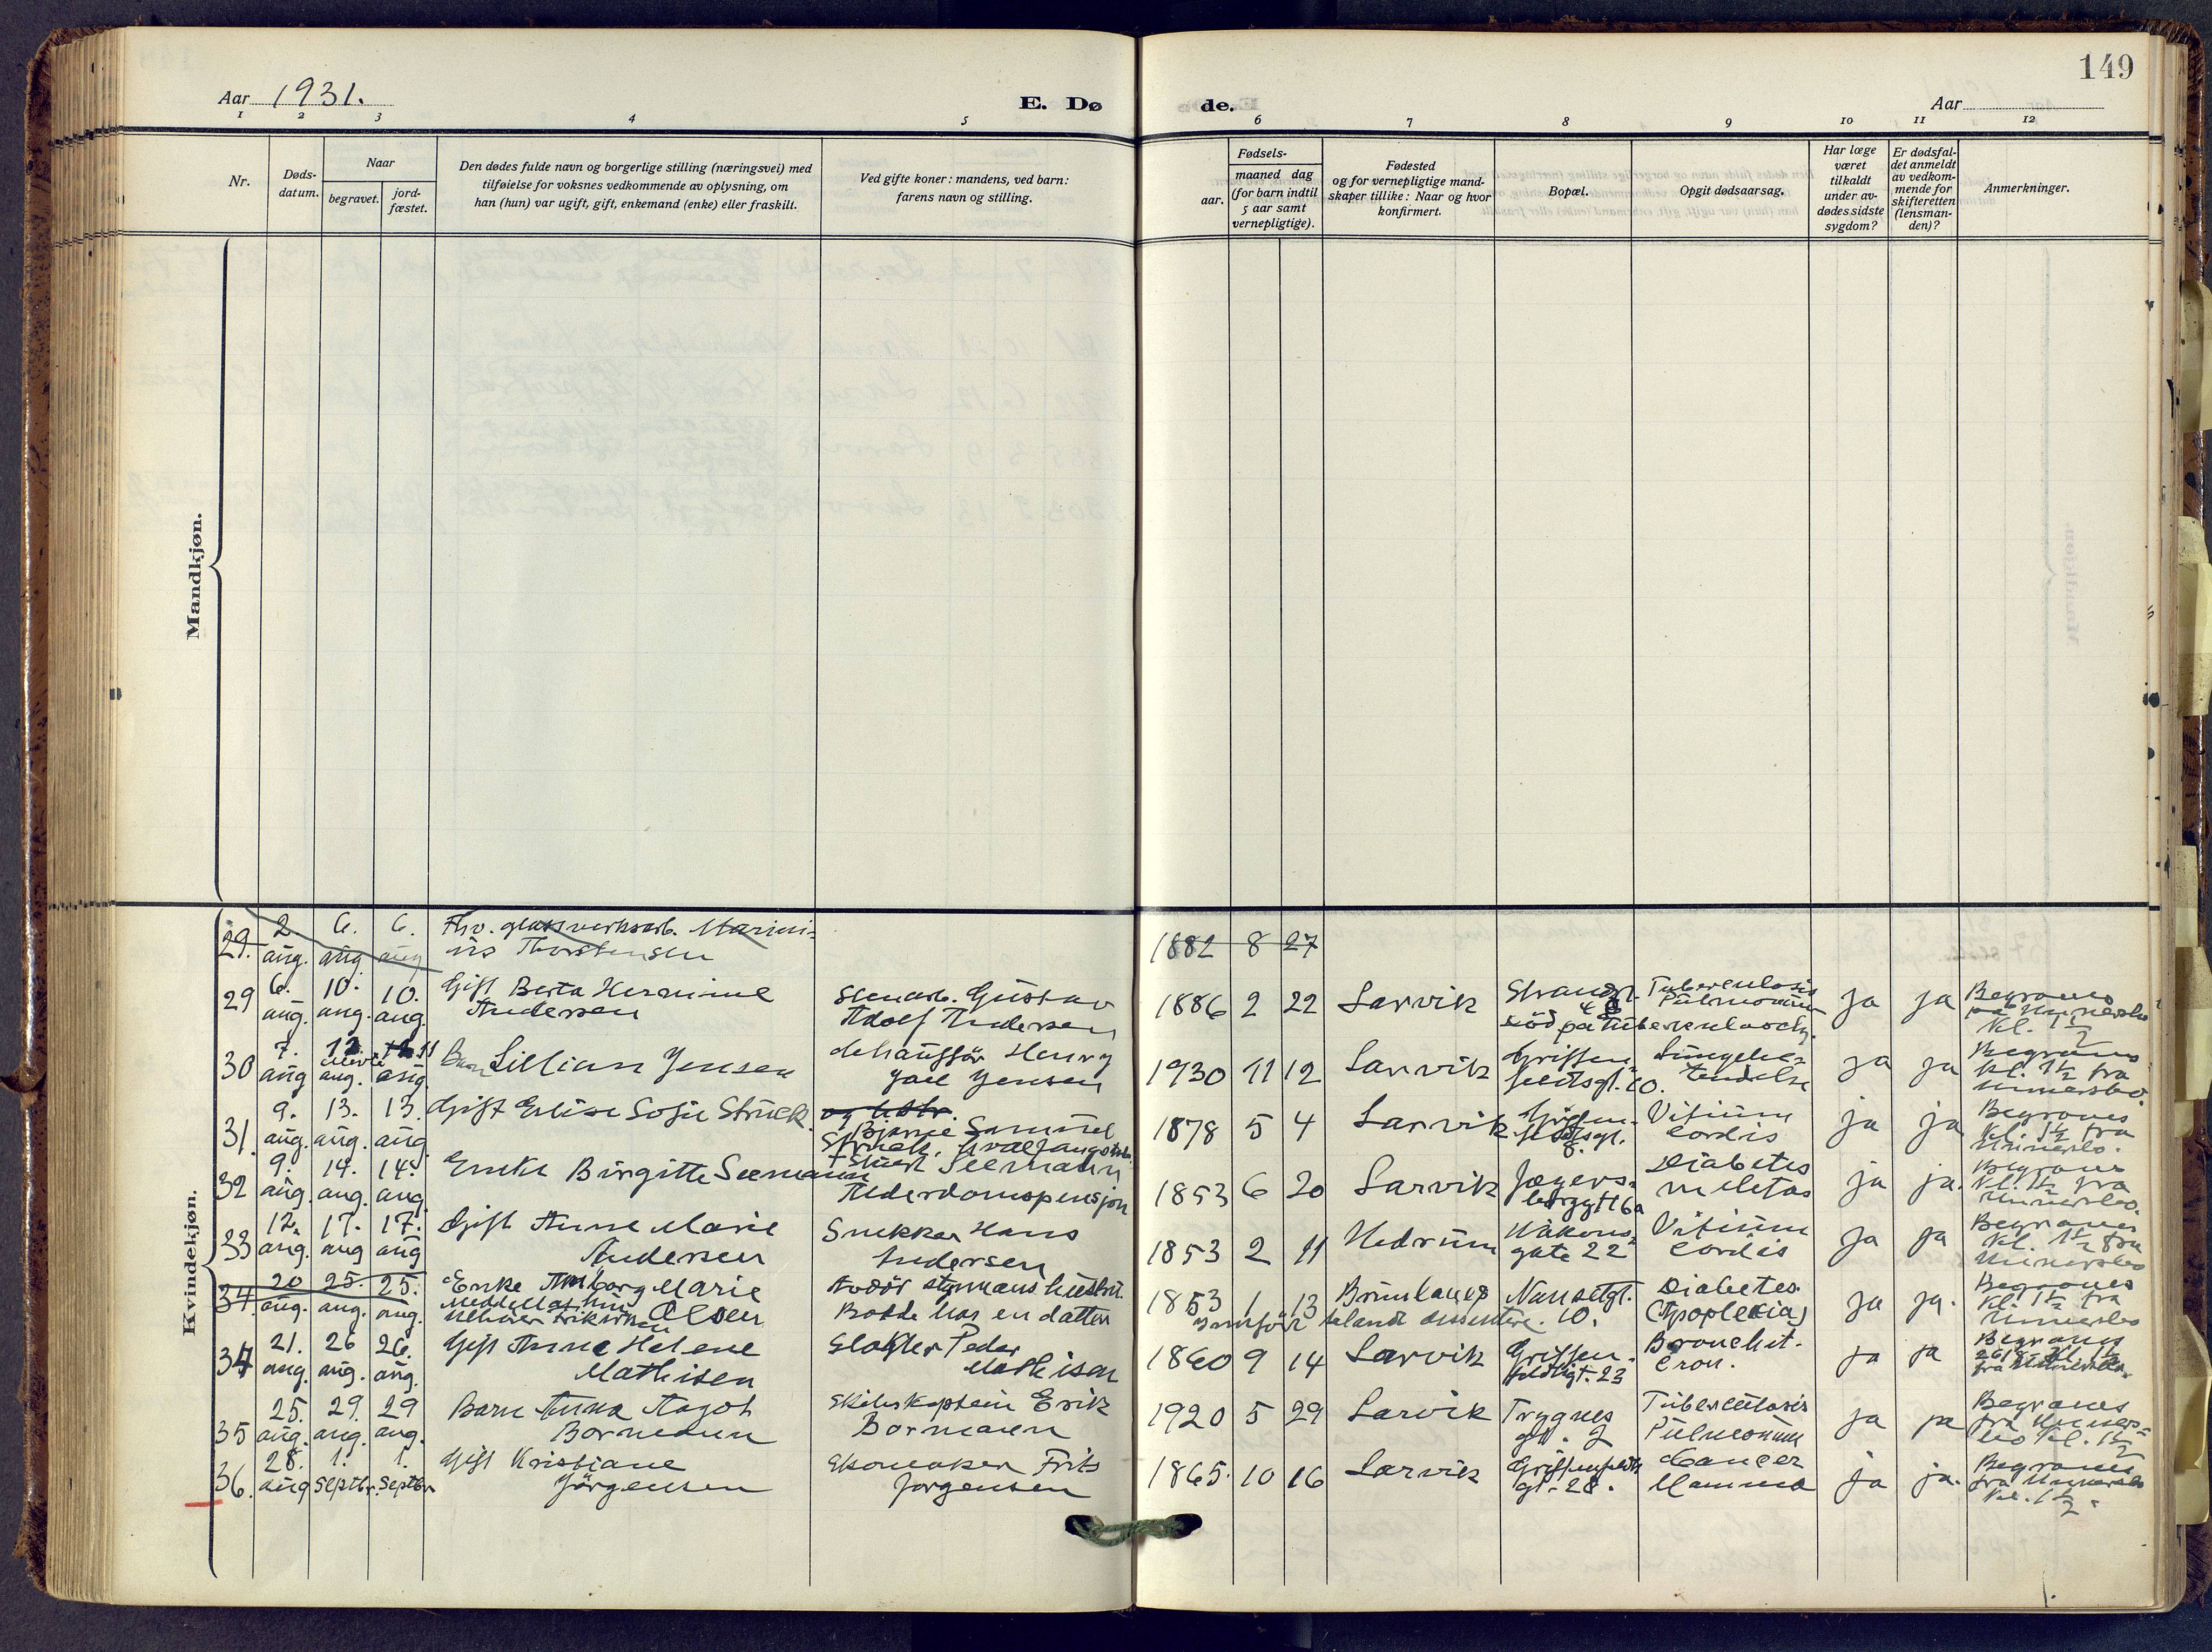 149
Aar 1931.
E. Dø
de.
Aar
1 2 3 4 5
6 7 8 9 10 11 12
Nr.
Døds-
datum.
Naar
begravet.
jord-
fæstet.
Den dødes fulde navn og borgerlige stilling (næringsvei) med
tilføielse for voksnes vedkommende av oplysning, om
han (hun) var ugift, gift, enkemand (enke) eller fraskilt.
Ved gifte koner: mandens, ved barn:
farens navn og stilling.
Fødsels-
aar.
maaned dag
(for barn indtil
5 aar samt
vernepligtige).
Fødested
og for vernepligtige mand-
skaper tillike: Naar og hvor
konfirmert.
Bopæl.
Opgit dødsaarsag.
Har læge
været
tilkaldt
under av-
dødes sidste
sygdom?
Er dødsfal-
det anmeldt
av vedkom-
mende for
skifteretten
(lensman-
den)?
Anmerkninger.
Mandkjøn.
Kvindekjøn.
29. 2 aug. 6. aug 6. aug Fhv. glassverksarb. Marini-
us Thorstensen
1882 8 27
29 6. aug. 10. aug. 10. aug. Gift Berta Hermine
Andersen
Stenarb. Gustav
Adolf Andersen
1886 2 22 Larvik Strandgt. Tuberculosis
Pulmonum
død på
ja ja Begraves
kl. 1½
30 7. aug aug. 11 aug Barn Lillian Jensen
Henry
Jensen
1930 11 12 Larvik Griffen-
feldtsgt. 10. Lungebe-
tendelse
ja ja Begraves
kl. 1½ fra
31. 9. aug. 13. aug. 13. aug. Gift Elise Sofie Struck.
Bjarne Samuel
Struck, hvalfangstarb.
1878 5 4 Larvik Vitium
cordis
ja ja Begraves
kl. 1½ fra
32 9. aug. 14. aug. 14. aug. Enke Birgitte Seemann
Seemann
Alderdomspensjon
1853 6 20 Larvik Jegers-
borggt 16a Diabetes
meletas
ja ja. Begraves
kl. 1½ fra
33 12. aug. 17. aug 17. aug Gift Anne Marie
Andersen
Snekker Hans
Andersen
1853 2 11 Hedrum Håkons-
gate 22 Vitium
cordis
ja ja Begraves
kl. 1½ fra
34. 20 aug. 25. aug. 25. aug. Enke Marie
Olsen
Bodde hos en datter
1853 1 13 Brunlanes Nansetgt.
10. Diabetes
(Apoplexia)
ja ja. Begraves
kl. 1½ fra
34 21. aug. 26 aug. 26. aug. Gift Anne Helene
Mathisen
Peder
Mathisen
1860 9 14 Larvik Griffen-
feldtsgt. 23 Bronchit.
cron.
ja ja Begraves
35 25. aug. 29. aug. 29 aug. Barn Anna Aagot
Bormann
Skibskaptein Erik
Bormann
1920 5 29 Larvik Trygves
gt. 2 Tuberculosis
Pulmonum
ja ja Begraves
kl. 1½
36. 28. aug 1. Septbr. 1. Septbr. Gift Kristiane
Jørgensen
Skomaker Frits
Jørgensen
1865. 10 16 Larvik Griffenfeldts
gt. 28. Cancer
Mamma
ja ja. Begraves
kl. 1½.